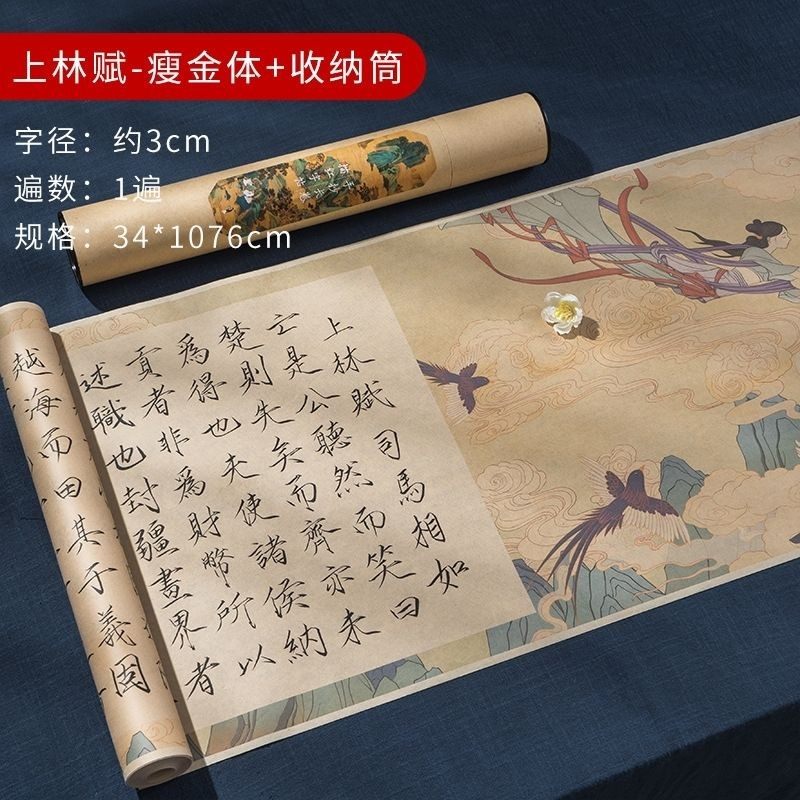 上林赋-瘦金体+收纳筒
字径：约3cm
遍数：1遍
规格：34*1076cm
上林賦司馬相如
亡是公聽然而笑曰
楚則失矣而齊亦未
爲得也夫使諸侯納
貢者非爲財幣所以
述職也封疆畫界者
越海而田其于義固